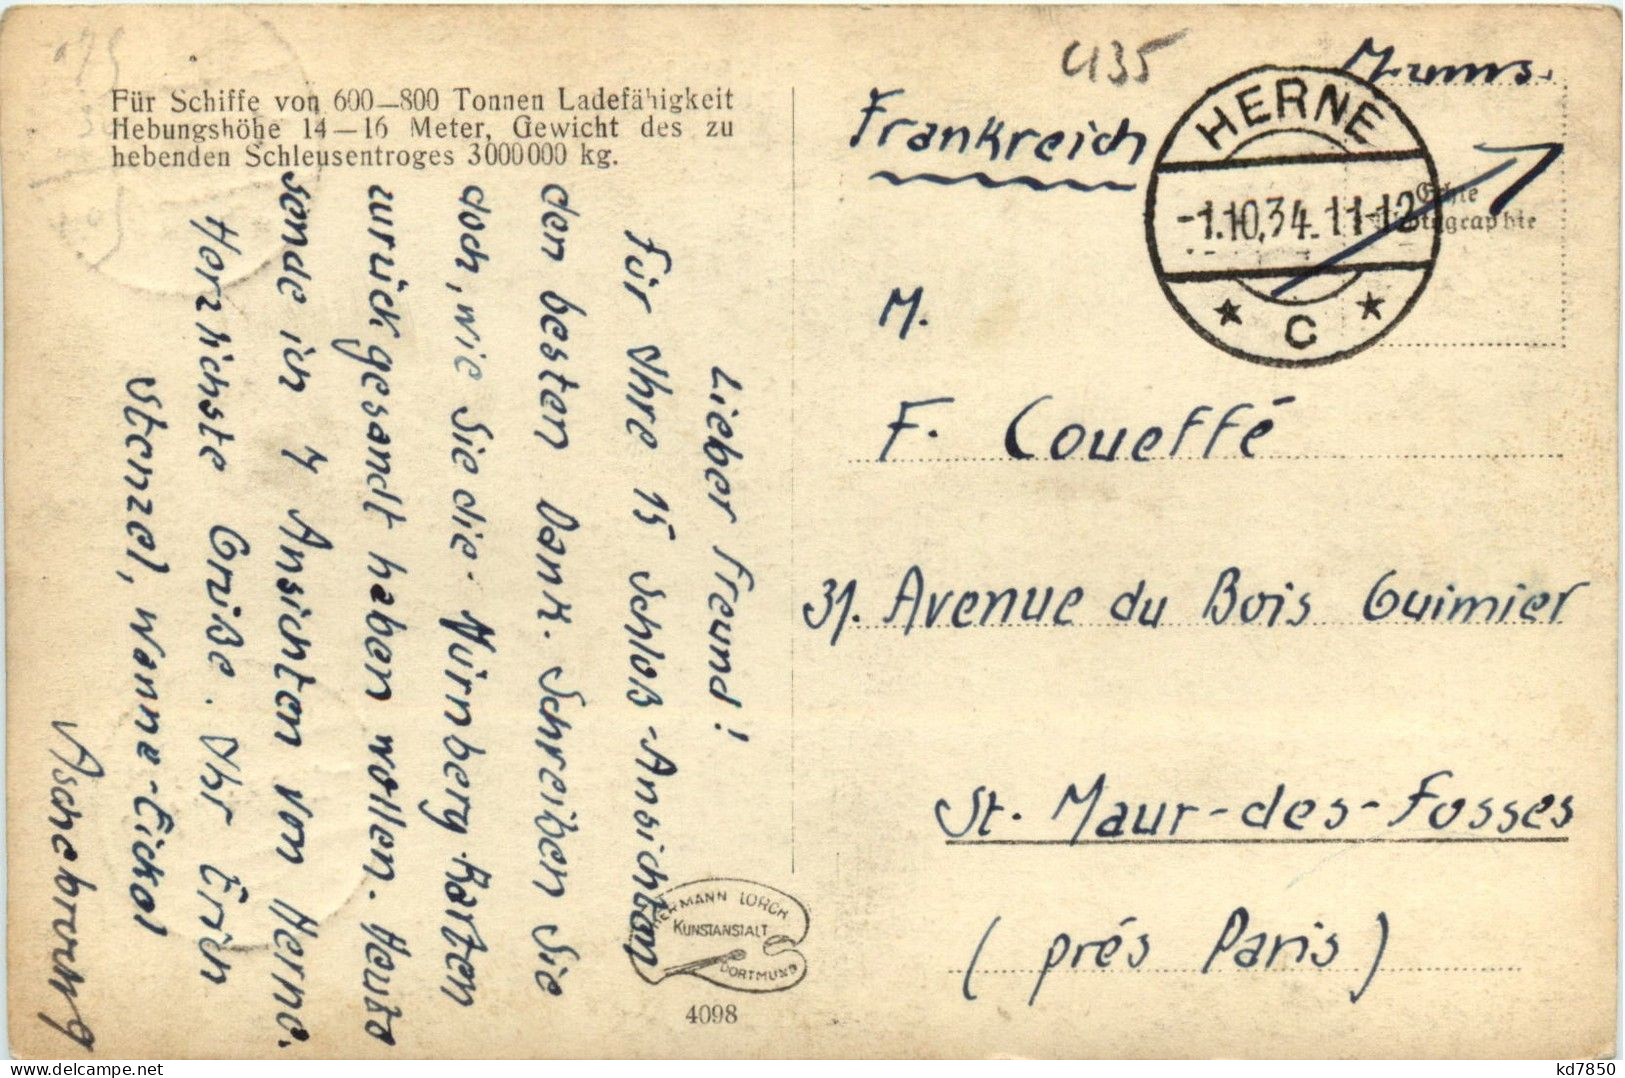 Für Schiffe von 600—800 Tonnen Ladefähigkeit
Hebungshöhe 14—16 Meter, Gewicht des zu
hebenden Schleusentroges 3000000 kg.
Lieber Freund!
Für Ihre 15 Schloß-Ansichten
den besten Dank. Schreiben Sie
doch, wie Sie die Nürnberg-Karten
zurückgesandt haben wollen. Heute
sende ich 4 Ansichten von Herne.
Herzlichste Grüße. Ihr Erich
Stenzel, Wanne-Eickel
HERMANN LORCH
KUNSTANSTALT
DORTMUND
4098
435
Frankreich
HERNE
-1.10.34. 11-12
* C *
Echte
Photographie
M.
F. Coueffé
31. Avenue du Bois Guimier
St. Maur-des-Fosses
(prés Paris)